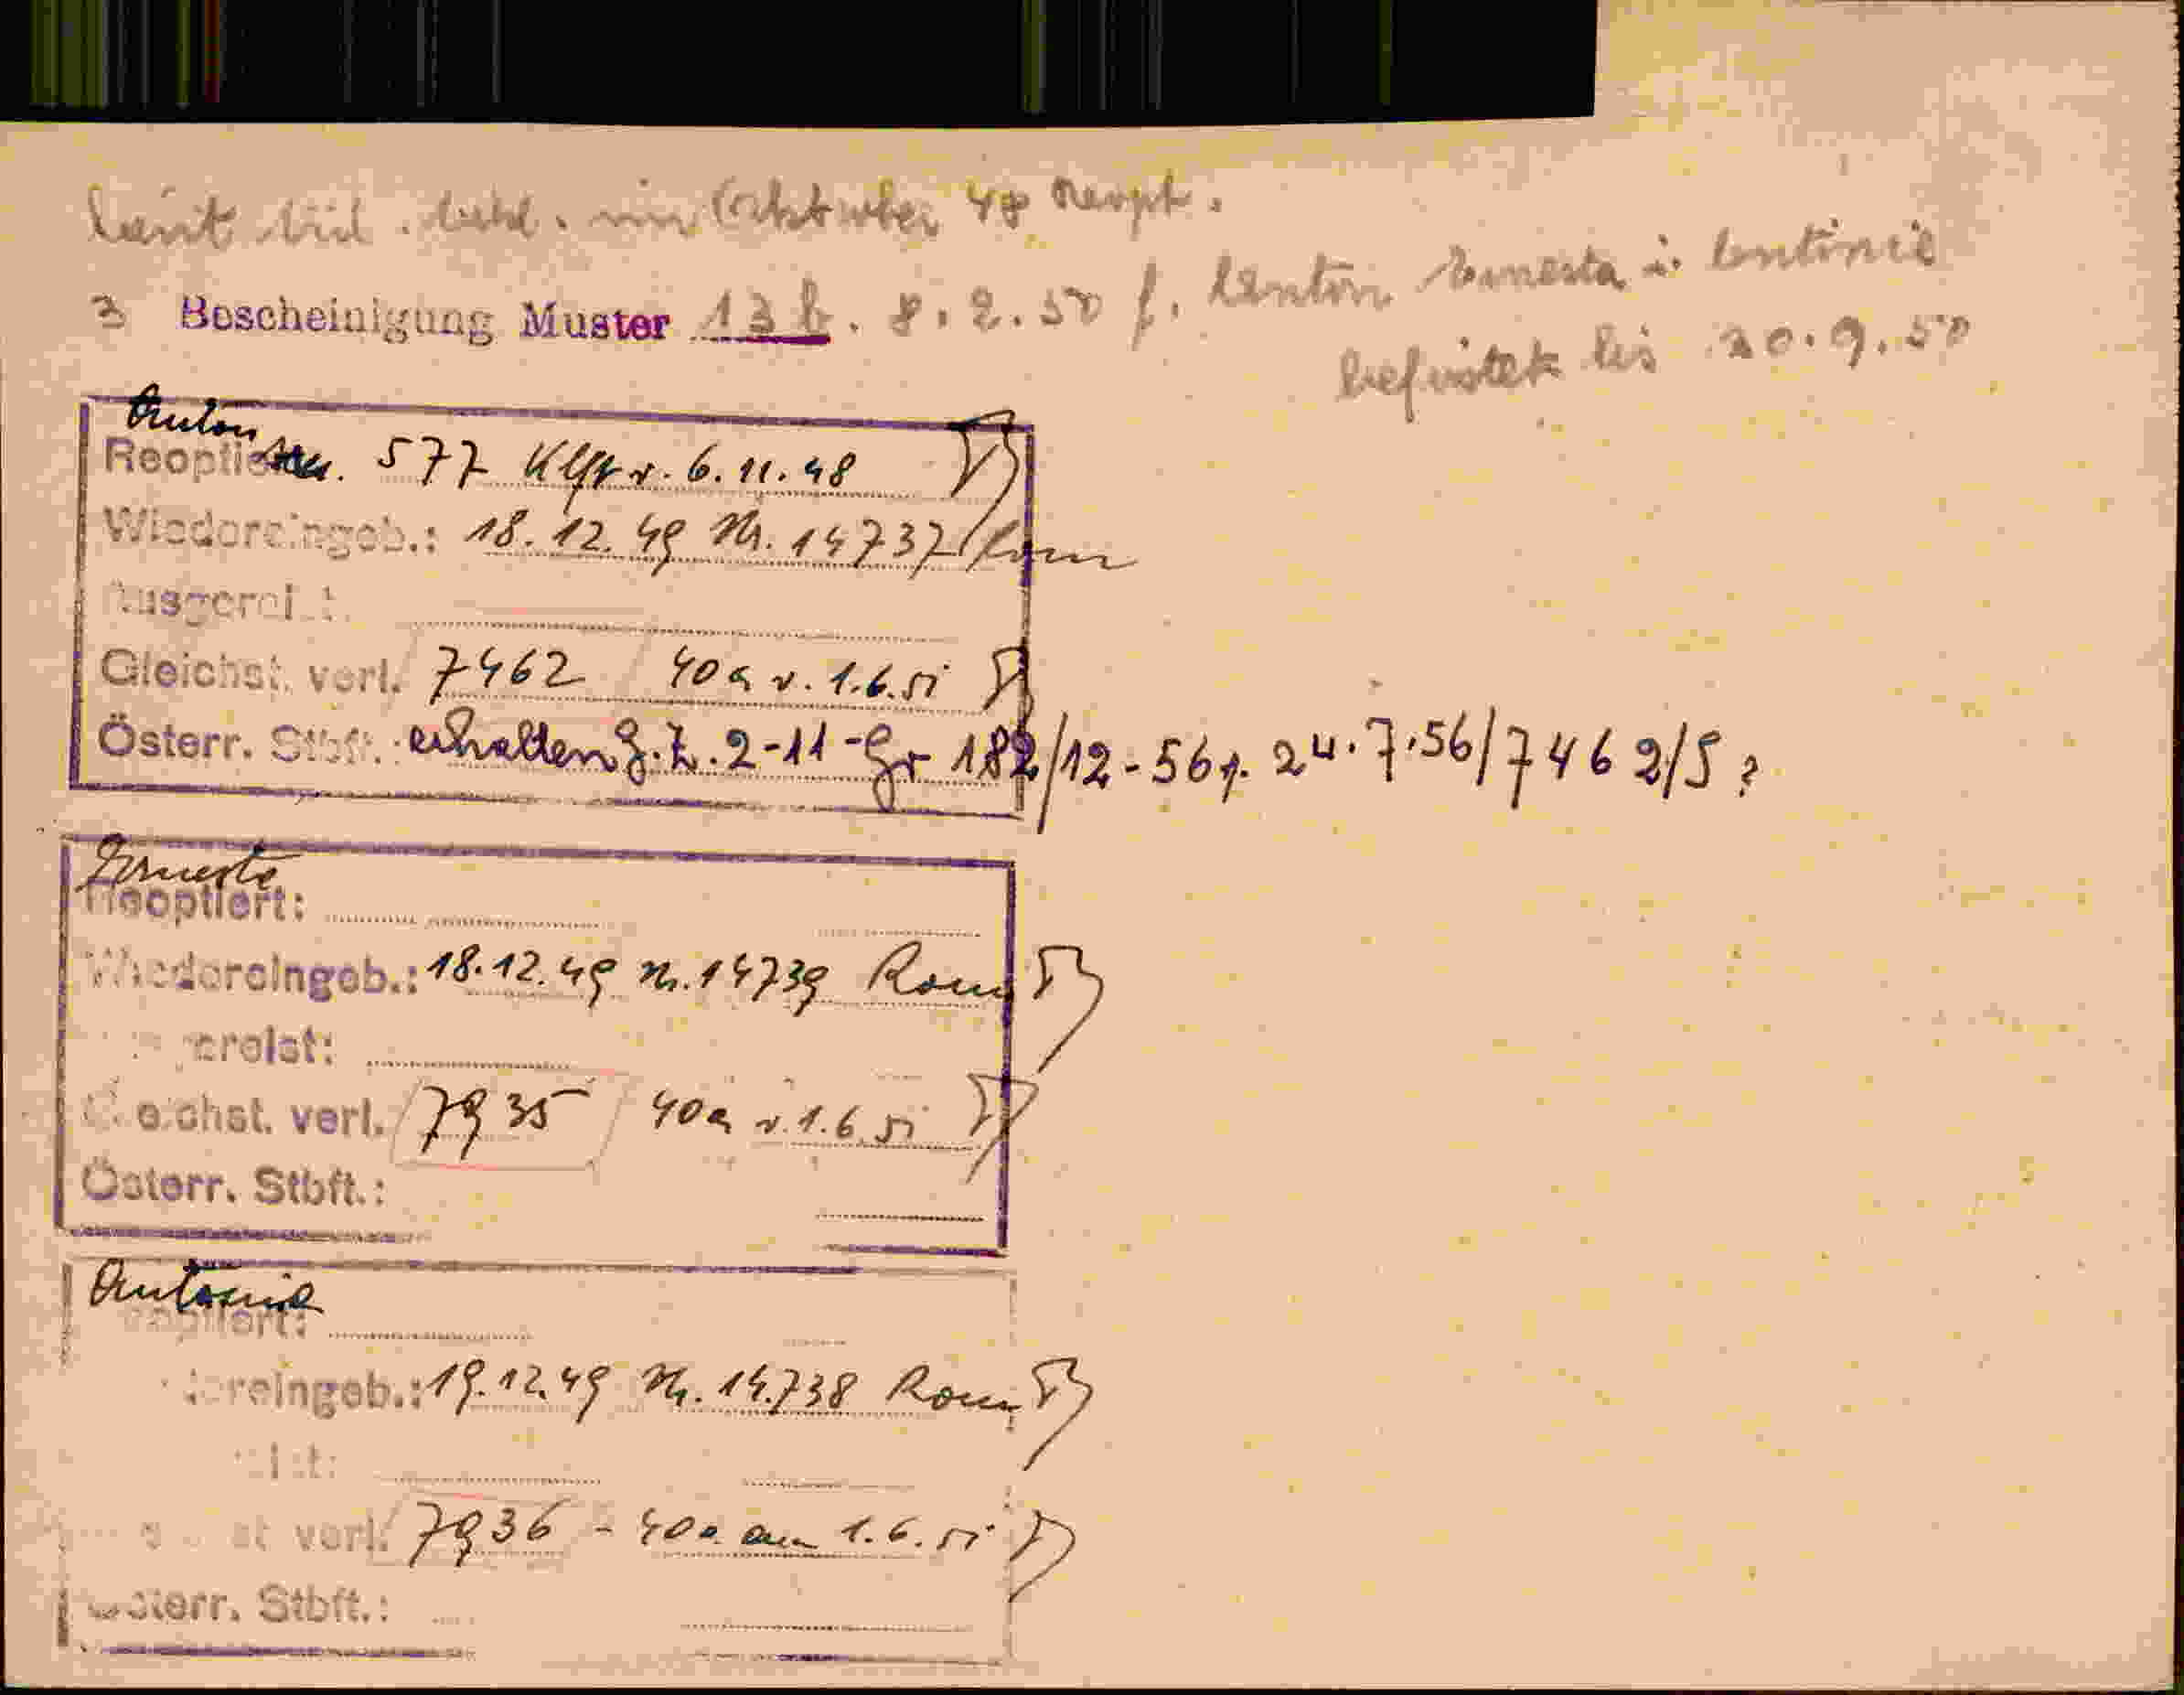 laut Oktober 48 Reopt.
3 Bescheinigung Muster 13b. 8.2.50 f. Anton Ernesta u. Antonie
befristet bis 20.9.50
Anton
Reoptiert. 577 Klgft v. 6.11.48
Wiedereingeb.: 18.12.49 Nr. 14737/Rom
Ausgereist:
Gleichst. verl. 7462 40a v. 1.6.51
Österr. Stbft.: erhalten 2-11-Gr 182/12-56 v. 24.7.56/7462/5
Ernesta
Reoptiert:
Wiedereingeb.: 18.12.49 Nr. 14739 Rom
ereist:
Gleichst. verl. 7935 40a v. 1.6.51
Österr. Stbft.:
Antonie
Reoptiert:
dereingeb.: 19.12.49 Nr. 14.738 Rom
st verl. 7936 - 40a am 1.6.51
Österr. Stbft.: